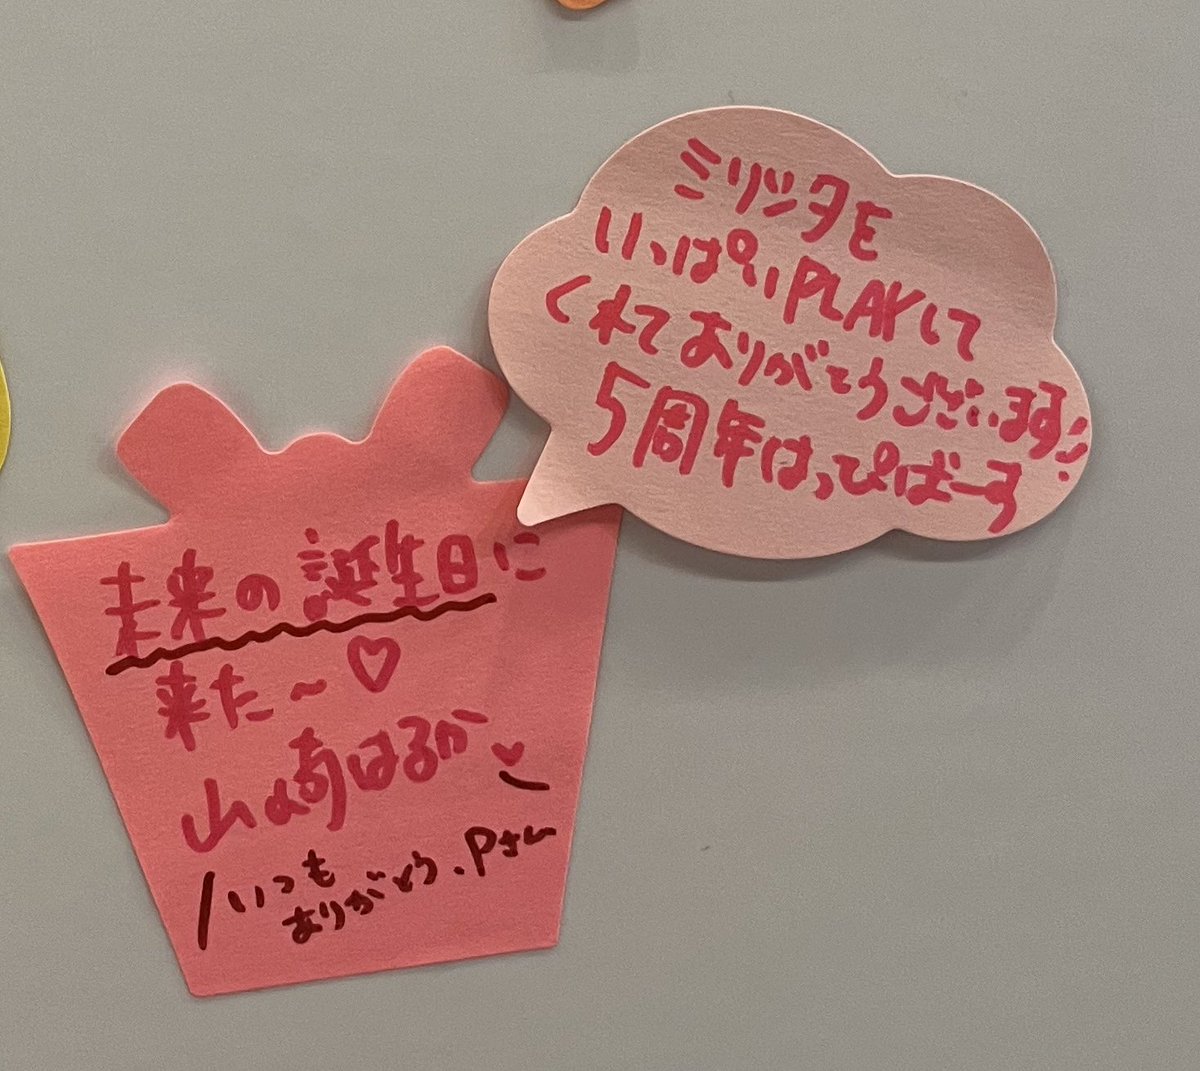 ミリシタを
いっぱいPLAYして
くれてありがとうございます!
5周年はっぴばーす
未来の誕生日に
来た〜♡
山崎はるか♥
/いつも
ありがとう、Pさん